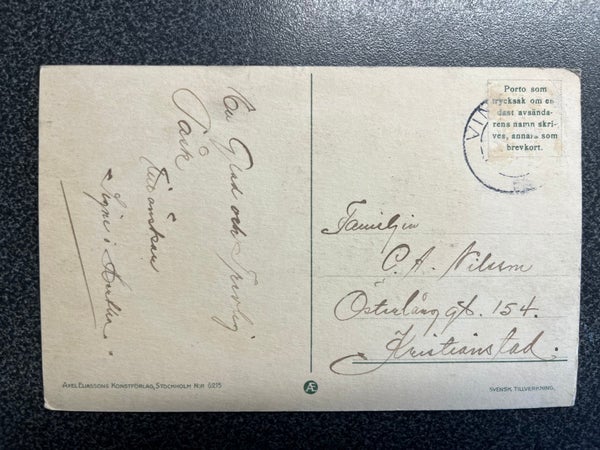 En Glad och Trevlig
Påsk
Tillönskan
Signe i
Porto som
trycksak om en-
dast avsända-
rens namn skri-
ves, annars som
brevkort.
VIN
Familjen
C. A. Nilsson
Österlång g. 154.
Kristianstad.
AXEL ELIASSONS KONSTFÖRLAG, STOCKHOLM N:R 6215
Æ
SVENSK TILLVERKNING.